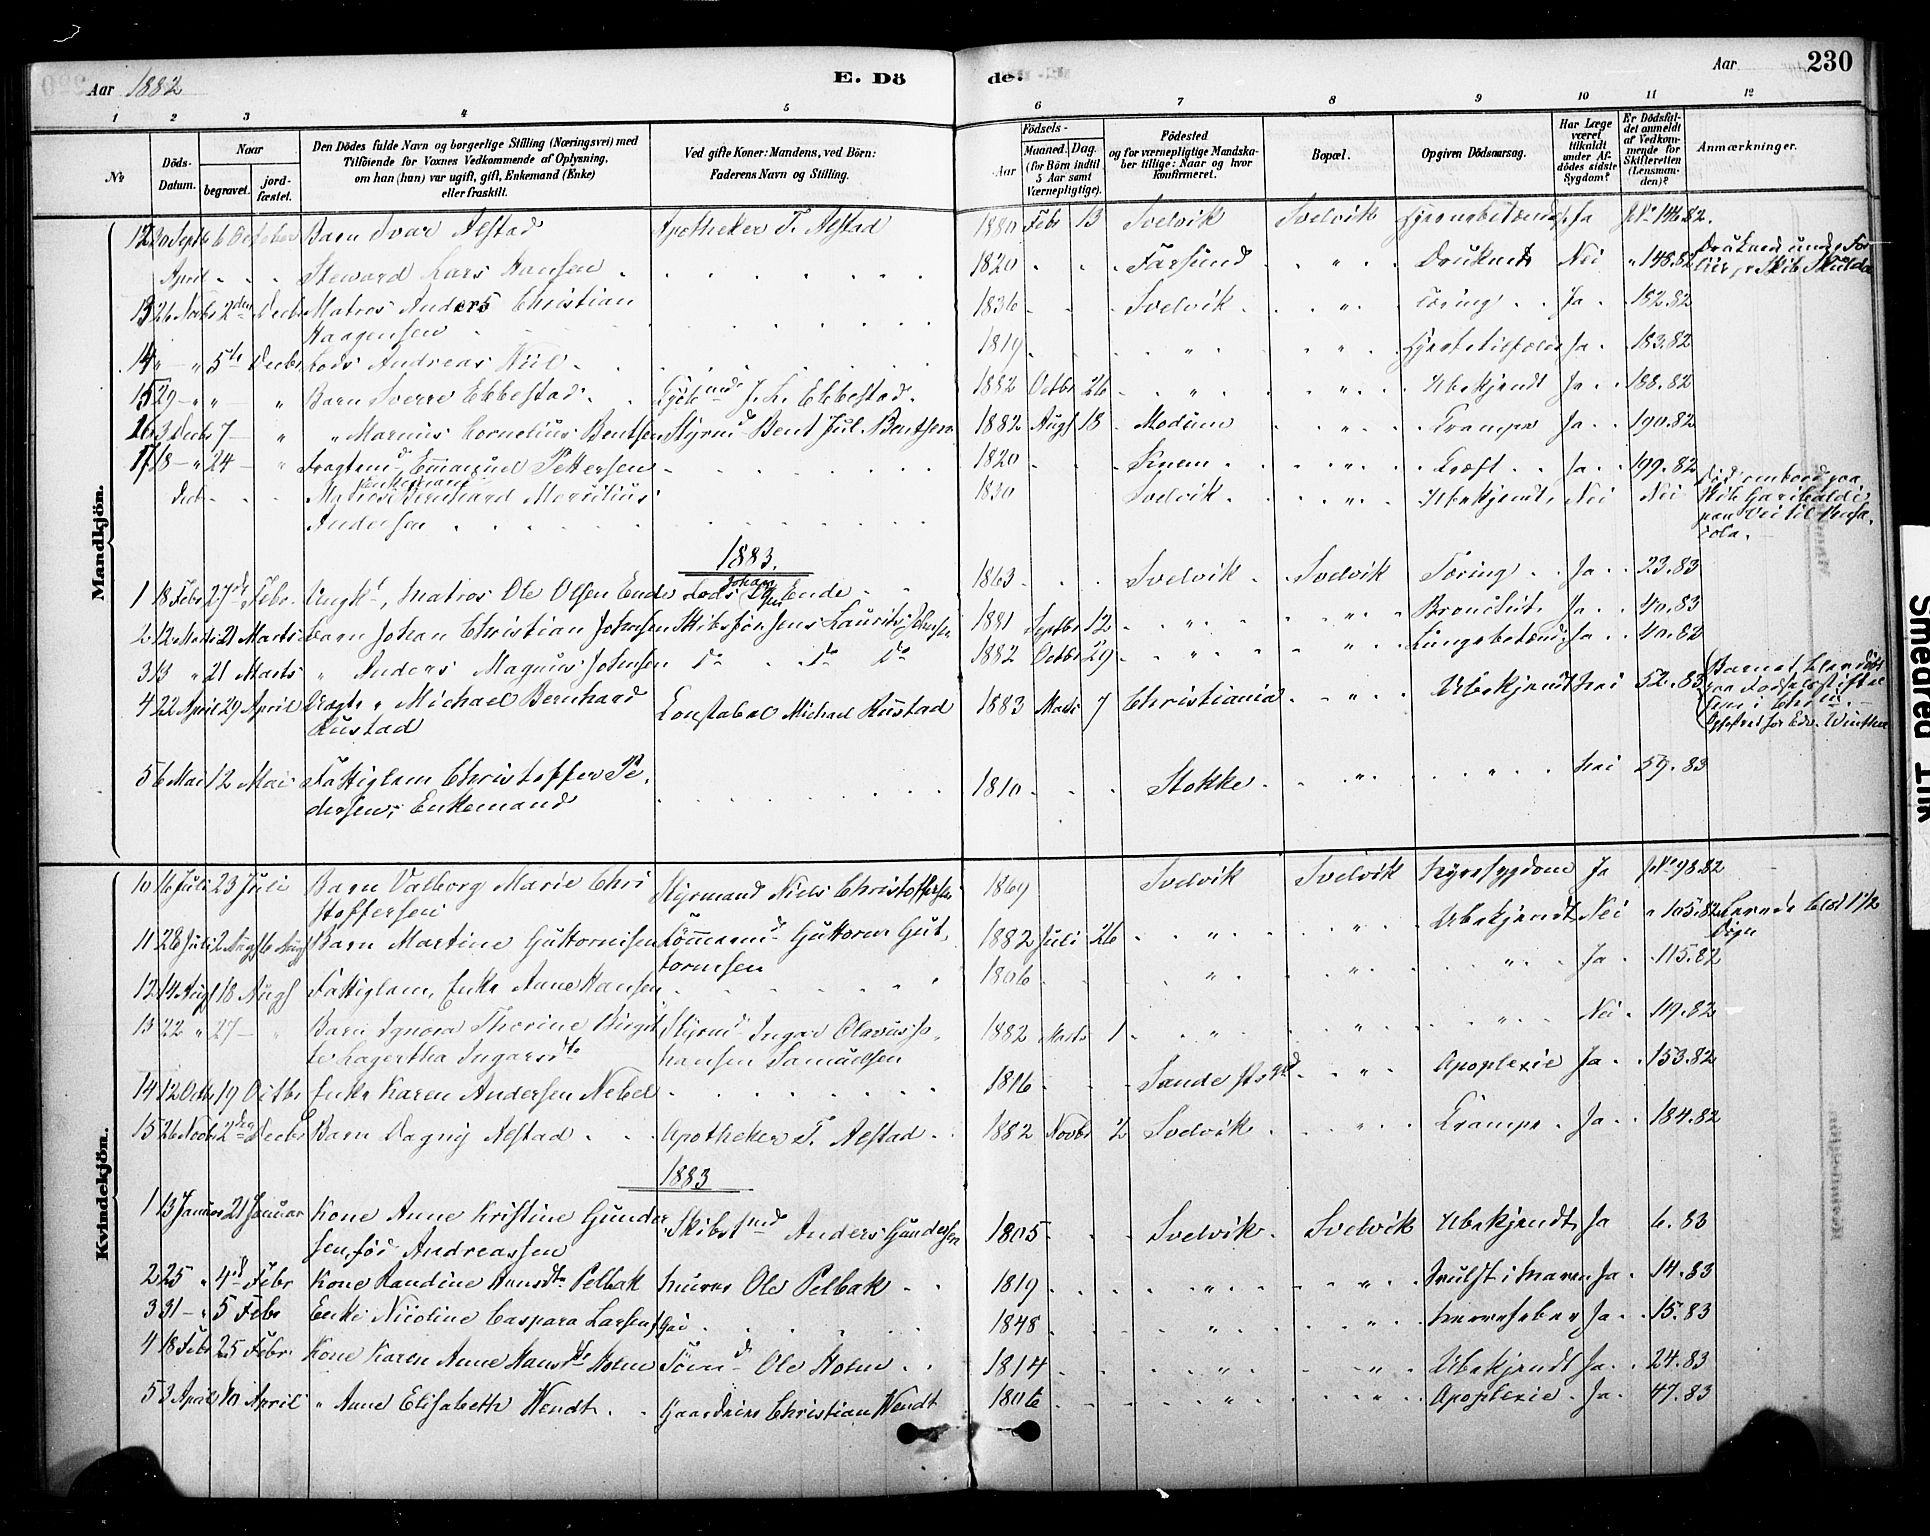 Aar 1882 E. Dö de. Aar 230
1 2 3 4 5 6 7 8 9 10 11 12
No
Döds-Datum.
Naar
begravet.
jord-fæstet.
Den Dödes fulde Navn og borgerlige Stilling (Næringsvei) med
Tilföiende for Voxnes Vedkommende af Oplysning,
om han (hun) var ugift, gift, Enkemand (Enke)
eller fraskilt.
Ved gifte Koner: Mandens, ved Börn:
Faderens Navn og Stilling.
Födsels-
Aar
Maaned. Dag.
(for Börn indtil
5 Aar samt
Værnepligtige).
Födested
og for værnepligtige Mandska-
ber tillige: Naar og hvor
konfirmeret.
Bopæl.
Opgiven Dödsaarsag.
Har Læge
været
tilkaldt
under Af-
dödes sidste
Sygdom?
Er Dödsfal-
det anmeldt
af Vedkom-
mende for
Skifteretten
(Lensman-
den)?
Anmærkninger.
Mandkjön.
12 30 Septb 6 October Barn Ivar Alstad Apotheker T. Alstad 1880 Febr 13 Svelvik Svelvik Hjernebetænd. Ja No 146.82.
April Steward Lars Hansen 1820 Farsund " Druknet Nei " 148.82
13 26 Novbr 2den Decbr Matros Anders Christian 1836 Svelvik " Tæring Ja 182.82
Haagensen
14 " " 5te Decbr Lods Andreas Kiil 1819 " " Ja 183.82
15 29 - " " " Barn Sverre Ebbestad J. L. Ebbestad 1882 Octbr 26 " " Ubekjendt Ja 188.82
16 3 Decbr 7 - " " Marius Cornelius Bentsen Styrmd Bent Jul. Bentsen 1882 Augs 18 Modum " Krampe Ja 190.82
17 18 - " 24 - " Fragtemd Emmanuel Pettersen 1820 Knem " Kræft Ja 199.82
Decb Matros Bernhard Mauritius 1830 Svelvik " Ubekjendt Nei Nei
Andersen
Död ombord paa
Skib Garibaldi
paa Vei til Pensa-
cola.
1883.
1 18 Febr 27de Febr. Ungk, Matros Ole Olsen Ende Lods Johan Ende 1863 Svelvik Svelvik Tæring Ja 23.83
2 12 Marts 21 Marts Barn Johan Christian Johnsen Skibsför Jens Laurits Johnsen 1881 Septbr 12 " " Bronchit. Ja 40.83
3 13 " 21 Marts " Anders Magnus Johnsen Do Do Do 1882 Octbr 29 " " Lungebetænd. Ja 40.82
4 22 April 29 April " Michael Bernhard Constabel Michael Rustad 1883 Marts 7 Christiania " Ubekjendt Nei 52.83
Rustad
5 6 Mai 12 Mai Fattiglem Christoffer Pe- 1810 Stokke " " Nei 59.83
dersen, Enkemand
Kvindekjön.
10 16 Juli 23 Juli Barn Valborg Marie Chri Styrmand Niels Christoffersen 1869 Svelvik Svelvik Nyresygdom Ja No 98.82
stoffersen
11 28 Juli 2 Augs 6 Augs Barn Martine Guttormsen Tömmermd Guttorm Gut- 1882 Juli 26 " " Ubekjendt Nei " 105.82 Levede blot 1 1/2
tormsen Dögn
12 14 Augs 18 Augs Fattiglem, Enke Anne Hansen 1806 " " " Ja 115.82
13 22 " 27 - " Barn Ignora Thorine Birgit- Styrmd Ingar Olavus Jo- 1882 Marts 1 " " " Nei 119.82
te Lagertha Ingarsdtr hansen Samuelsen
14 12 Octb 19 Octbr Enke Karen Andersen Nebel 1816 Sande Prgd " Apoplexie Ja 153.82
15 26 Novbr 2den Decbr Barn Dagny Alstad Apotheker T. Alstad 1882 Novbr 2 Svelvik " Krampe Ja 184.82
1883
1 13 Januar 21 Januar Kone Anne Kristine Gunder Skibstmd Anders Gundersen 1805 Svelvik Svelvik Ubekjendt Ja 6.83
sen, föd Andreassen
2 25 " 4d Febr Kone Randine Hansdtr Pelbak Murer Ole Pelbak 1819 " " Svulst i Maven Ja 14.83
3 31 - " 5 Febr Enke Nicoline Caspara Larsen 1848 " " Nervefeber Ja 15.83
4 18 Febr 25 Febr. Kone Karen Anne Hansdtr Holm Tömmd Ole Holm 1814 " " Ubekjendt Ja 24.83
5 3 April 10 April " Anne Elisabeth Wendt Gaardeier Christian Wendt 1806 " " Apoplexie Ja 47.83
Smeared Ink